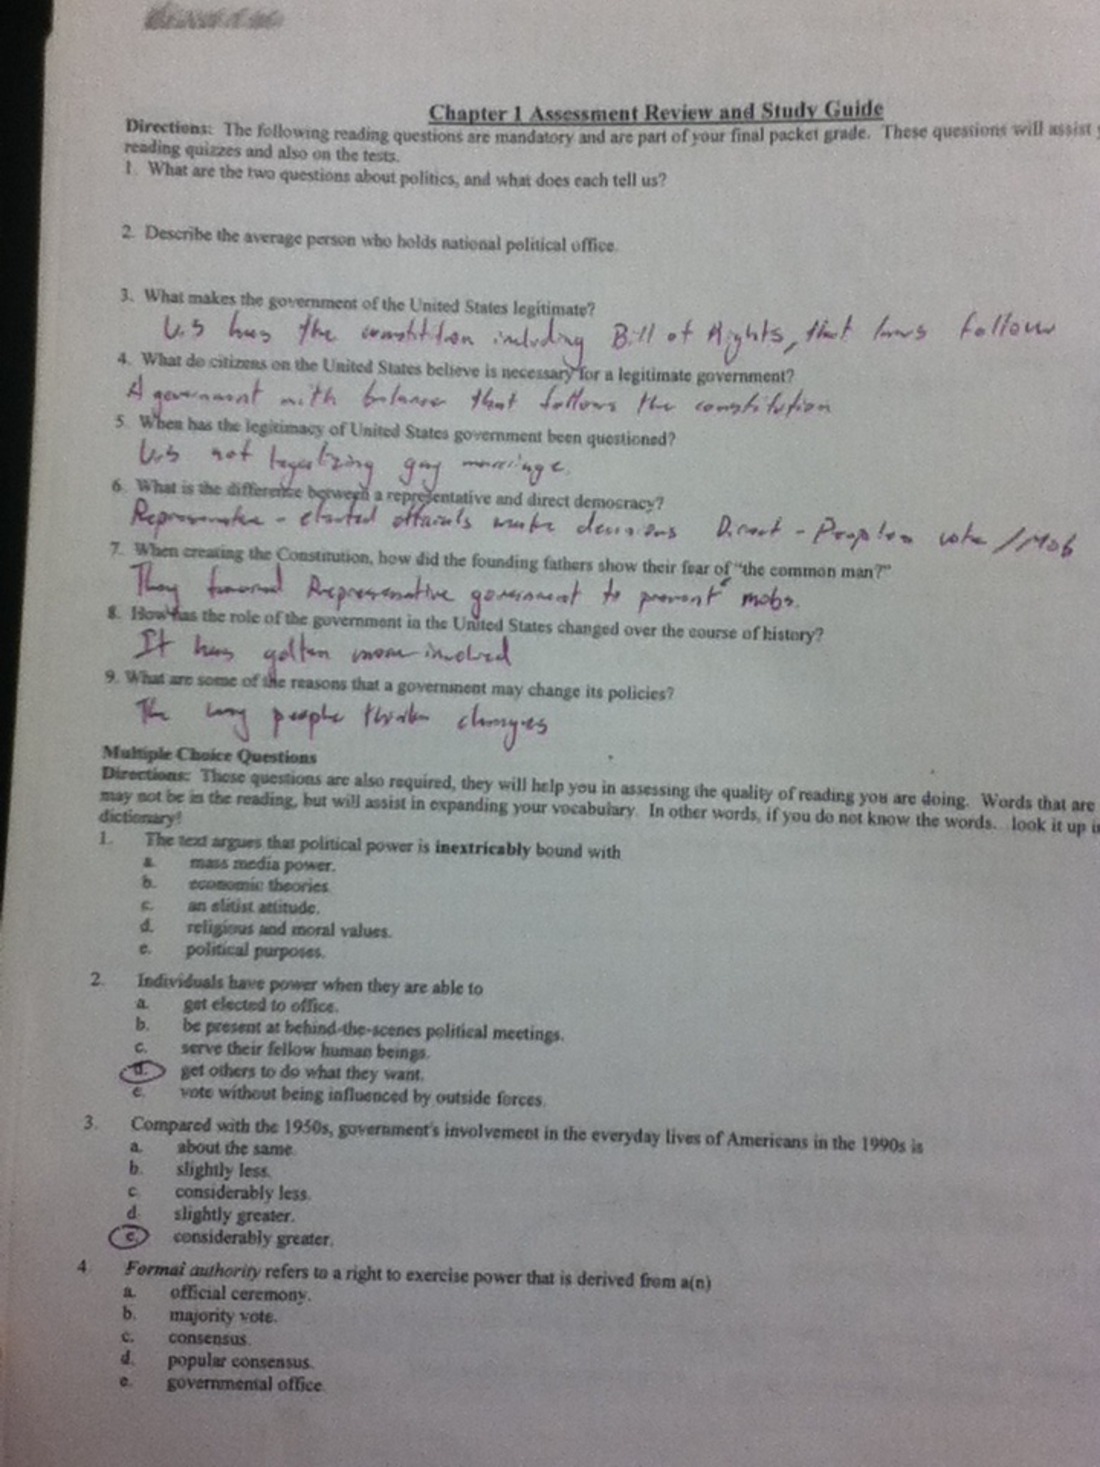 Chapter 1 Assessment Review and Study Guide
Directions: The following reading questions are mandatory and are part of your final packet grade. These questions will assist
reading quizzes and also on the tests.
1. What are the two questions about politics, and what does each tell us?
2. Describe the average person who holds national political office.
3. What makes the government of the United States legitimate?
U.S has the constitution including Bill of Rights, that laws follow
4. What do citizens on the United States believe is necessary for a legitimate government?
A government with balance that follows the constitution
5. When has the legitimacy of United States government been questioned?
U.S not legalizing gay marriage.
6. What is the difference between a representative and direct democracy?
Representative - elected officials make decisions Direct - Peoples vote / Mob
7. When creating the Constitution, how did the founding fathers show their fear of "the common man?"
They favored Representative government to prevent mobs.
8. How has the role of the government in the United States changed over the course of history?
It has gotten more involved
9. What are some of the reasons that a government may change its policies?
The way people think changes
Multiple Choice Questions
Directions: These questions are also required, they will help you in assessing the quality of reading you are doing. Words that are
may not be in the reading, but will assist in expanding your vocabulary. In other words, if you do not know the words... look it up
dictionary!
1. The text argues that political power is inextricably bound with
a. mass media power.
b. economic theories.
c. an elitist attitude.
d. religious and moral values.
e. political purposes.
2. Individuals have power when they are able to
a. get elected to office.
b. be present at behind-the-scenes political meetings.
c. serve their fellow human beings.
d. get others to do what they want.
e. vote without being influenced by outside forces.
3. Compared with the 1950s, government's involvement in the everyday lives of Americans in the 1990s is
a. about the same.
b. slightly less.
c. considerably less.
d. slightly greater.
e. considerably greater.
4. Formal authority refers to a right to exercise power that is derived from a(n)
a. official ceremony.
b. majority vote.
c. consensus.
d. popular consensus.
e. governmental office.